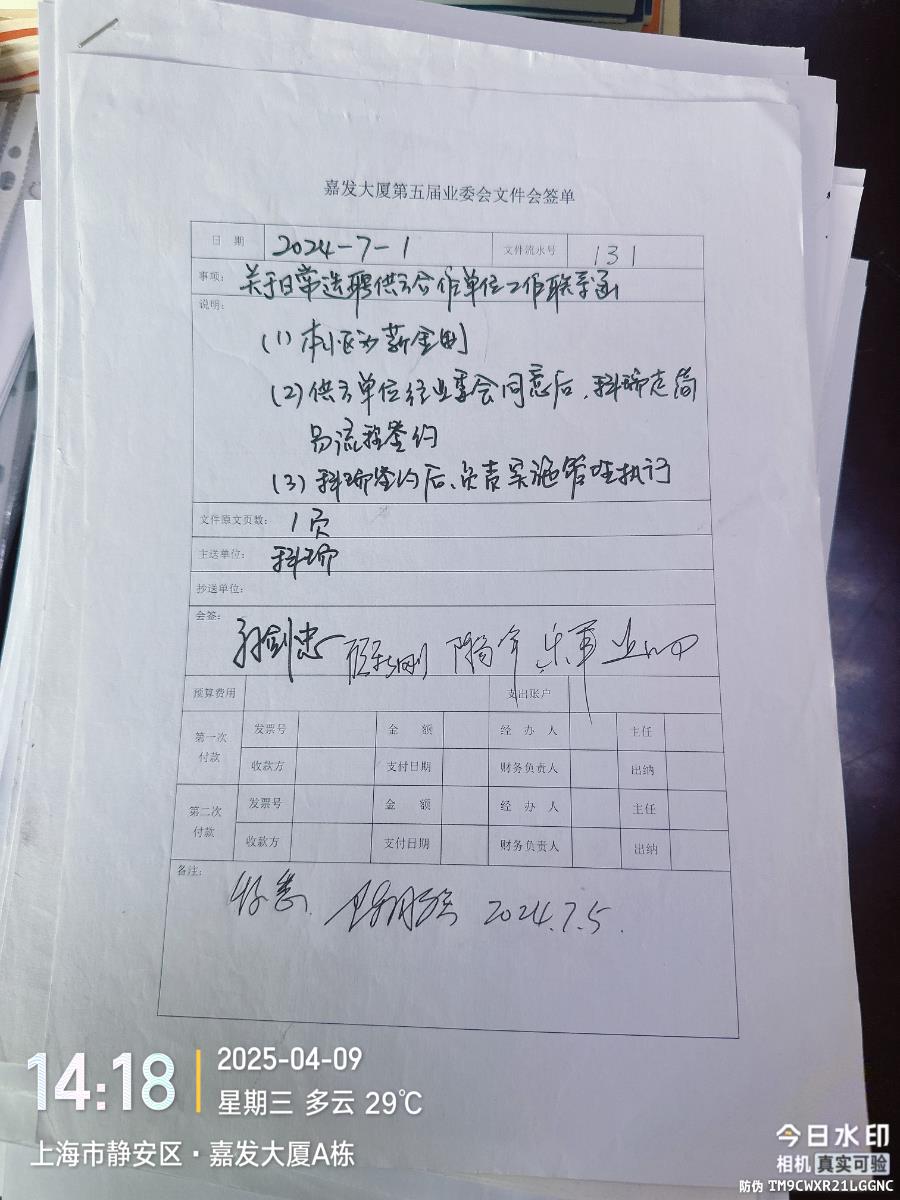 嘉发大厦第五届业委会文件会签单
日 期 2024-7-1 文件流水号 131
事项: 关于日常选聘供方合作单位工作联系函
说明:
(1) 本小区为薪金制
(2) 供方单位经业委会同意后,科瑞走简
易流程签约
(3) 科瑞签约后、负责实施管理执行
文件原文页数: 1页
主送单位: 科瑞
抄送单位:
会签:
预算费用 支出账户
第一次付款 发票号 金 额 经 办 人 主任
收款方 支付日期 财务负责人 出纳
第二次付款 发票号 金 额 经 办 人 主任
收款方 支付日期 财务负责人 出纳
备注:
2024.7.5.
14:18
2025-04-09
星期三 多云 29℃
上海市静安区·嘉发大厦A栋
今日水印
相机 真实可验
防伪 TM9CWXR21LGGNC